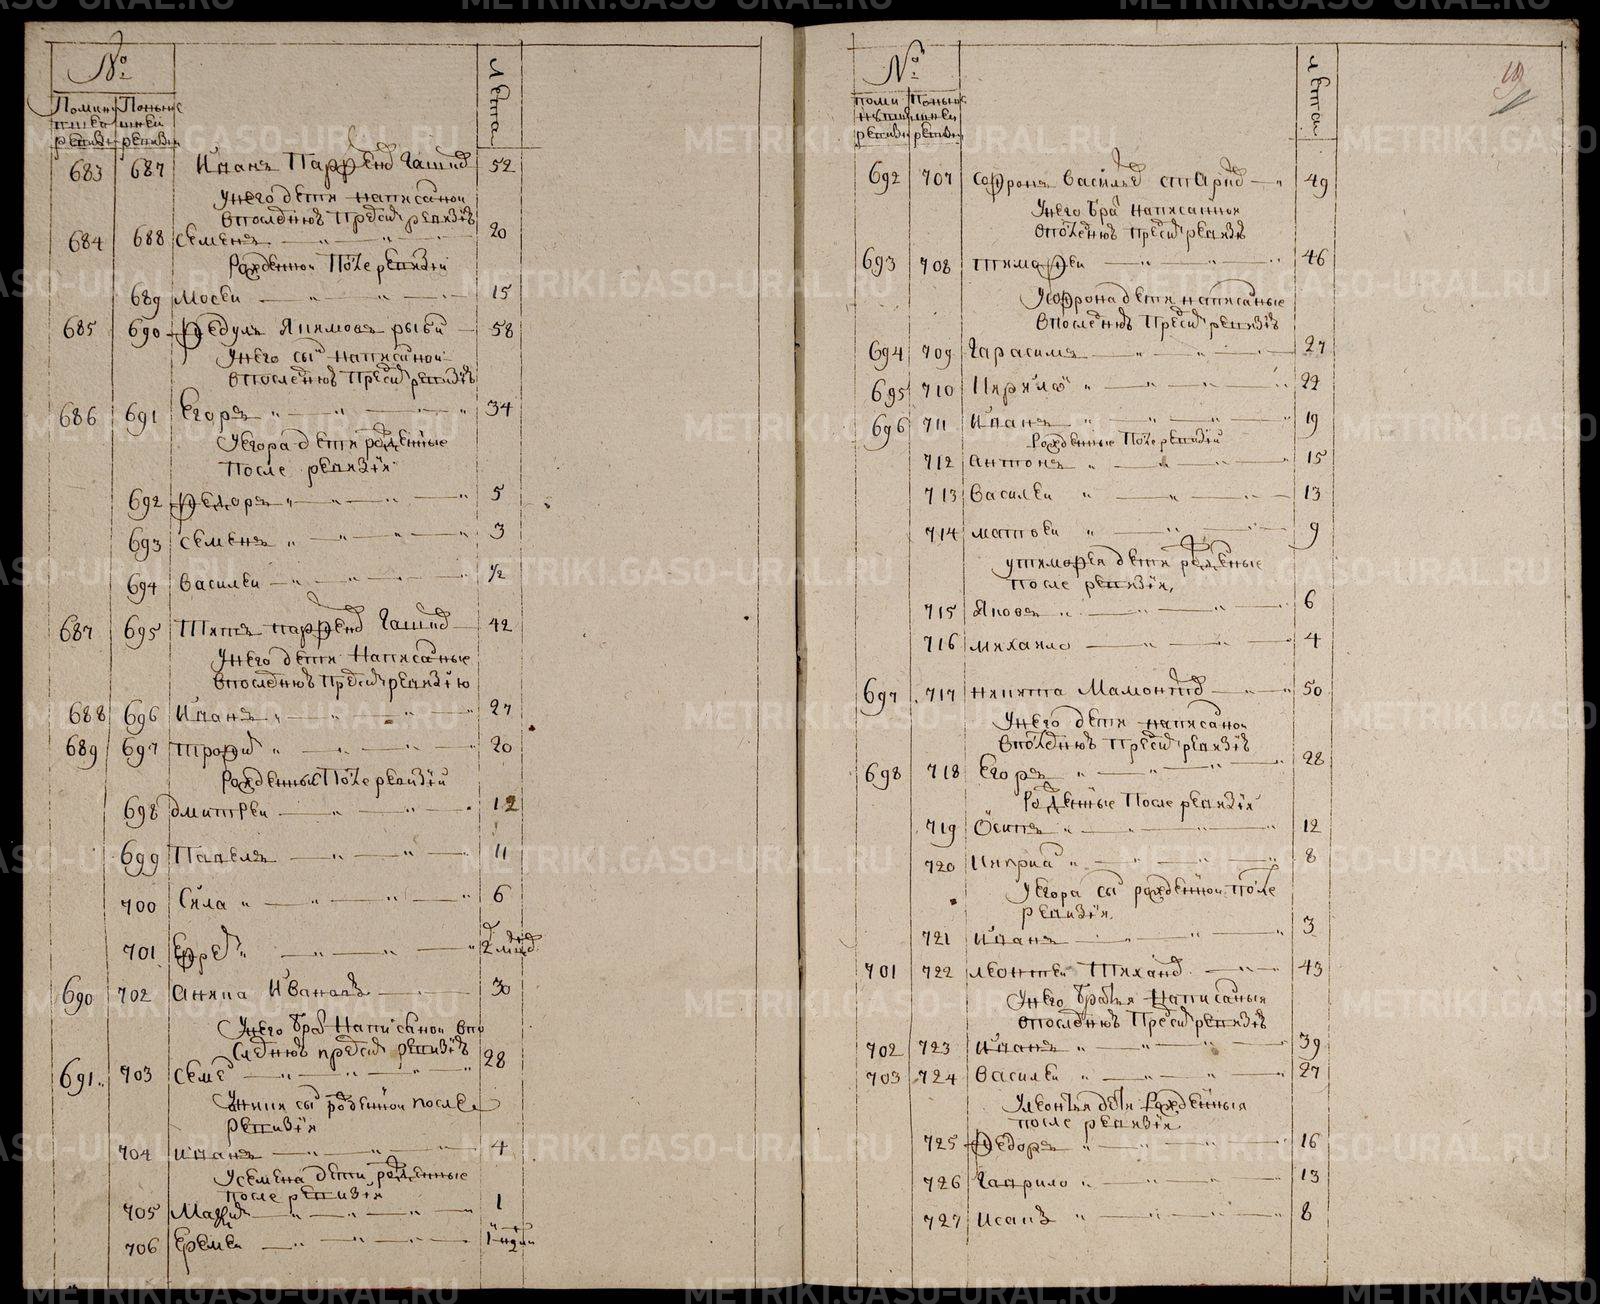 №
лѣта
683 687 Иванъ Парфенов Гашев 52
У него дети написанои
в последнюю пред сей ревизию
684 688 Семенъ 20
Рожденнои после ревизии
689 Мосеи 15
685 690 Федулъ Якимовъ рыбеи 58
У него сын написанои
в последнюю пред сей ревизию
686 691 Егоръ 34
У Егора дети рожденные
После ревизии
692 Федоръ 5
693 Семенъ 3
694 Василеи 1/2
687 695 Титъ парфенов Гашев 42
У него дети Написаные
в последнюю пред сей ревизию
688 696 Иванъ 27
689 697 Трофим 20
Рожденные После ревизии
698 Дмитреи 12
699 Павелъ 11
700 Сила 6
701 Ефрем 2 мес
690 702 Аника Ивановъ 30
У него брат Написанои в по
следнюю пред сей ревизию
691 703 Семен 28
У Аники сын рожденнои после
ревизии
704 Иванъ 4
У Семена дети рожденные
после ревизии
705 1
706 Еремеи 1 неде
№
лѣта
19
692 707 Софронъ Васильев старцов 49
У него брат написанныи
в последнюю пред сей ревизию
693 708 Тимофеи 46
У Софрона дети написаные
в последнюю пред сей ревизию
694 709 Гарасимъ 27
695 710 Кирило 22
696 711 Иванъ 19
Рожденные После ревизии
712 Антонъ 15
713 Василеи 13
714 Матвеи 9
у тимофея дети рожденые
после ревизии,
715 Яковъ 6
716 михаило 4
697 717 Никита Мамонтов 50
У него дети написанои
в последнюю пред сей ревизию
698 718 Егоръ 28
Рожденные После ревизии
719 Осипъ 12
720 Киприан 8
У Егора сын рожденнои после
ревизии
721 Иванъ 3
701 722 Леонтеи Тиханов 43
У него братья Написаныя
в последнюю Пред сей ревизию
702 723 Иванъ 39
703 724 Василеи 27
У Леонтья дети Рожденныя
после ревизии
725 Федоръ 16
726 Гаврило 13
727 Исакъ 8
METRIKI.GASO-URAL.RU